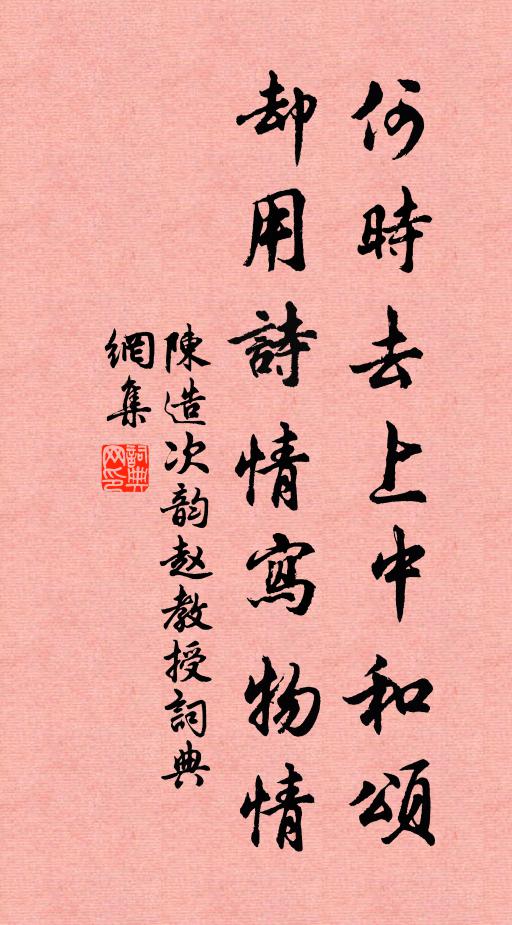 何時去上中和頌
却用詩情寫物情
陳造次韵赵教授詞典
網集
詞典網印